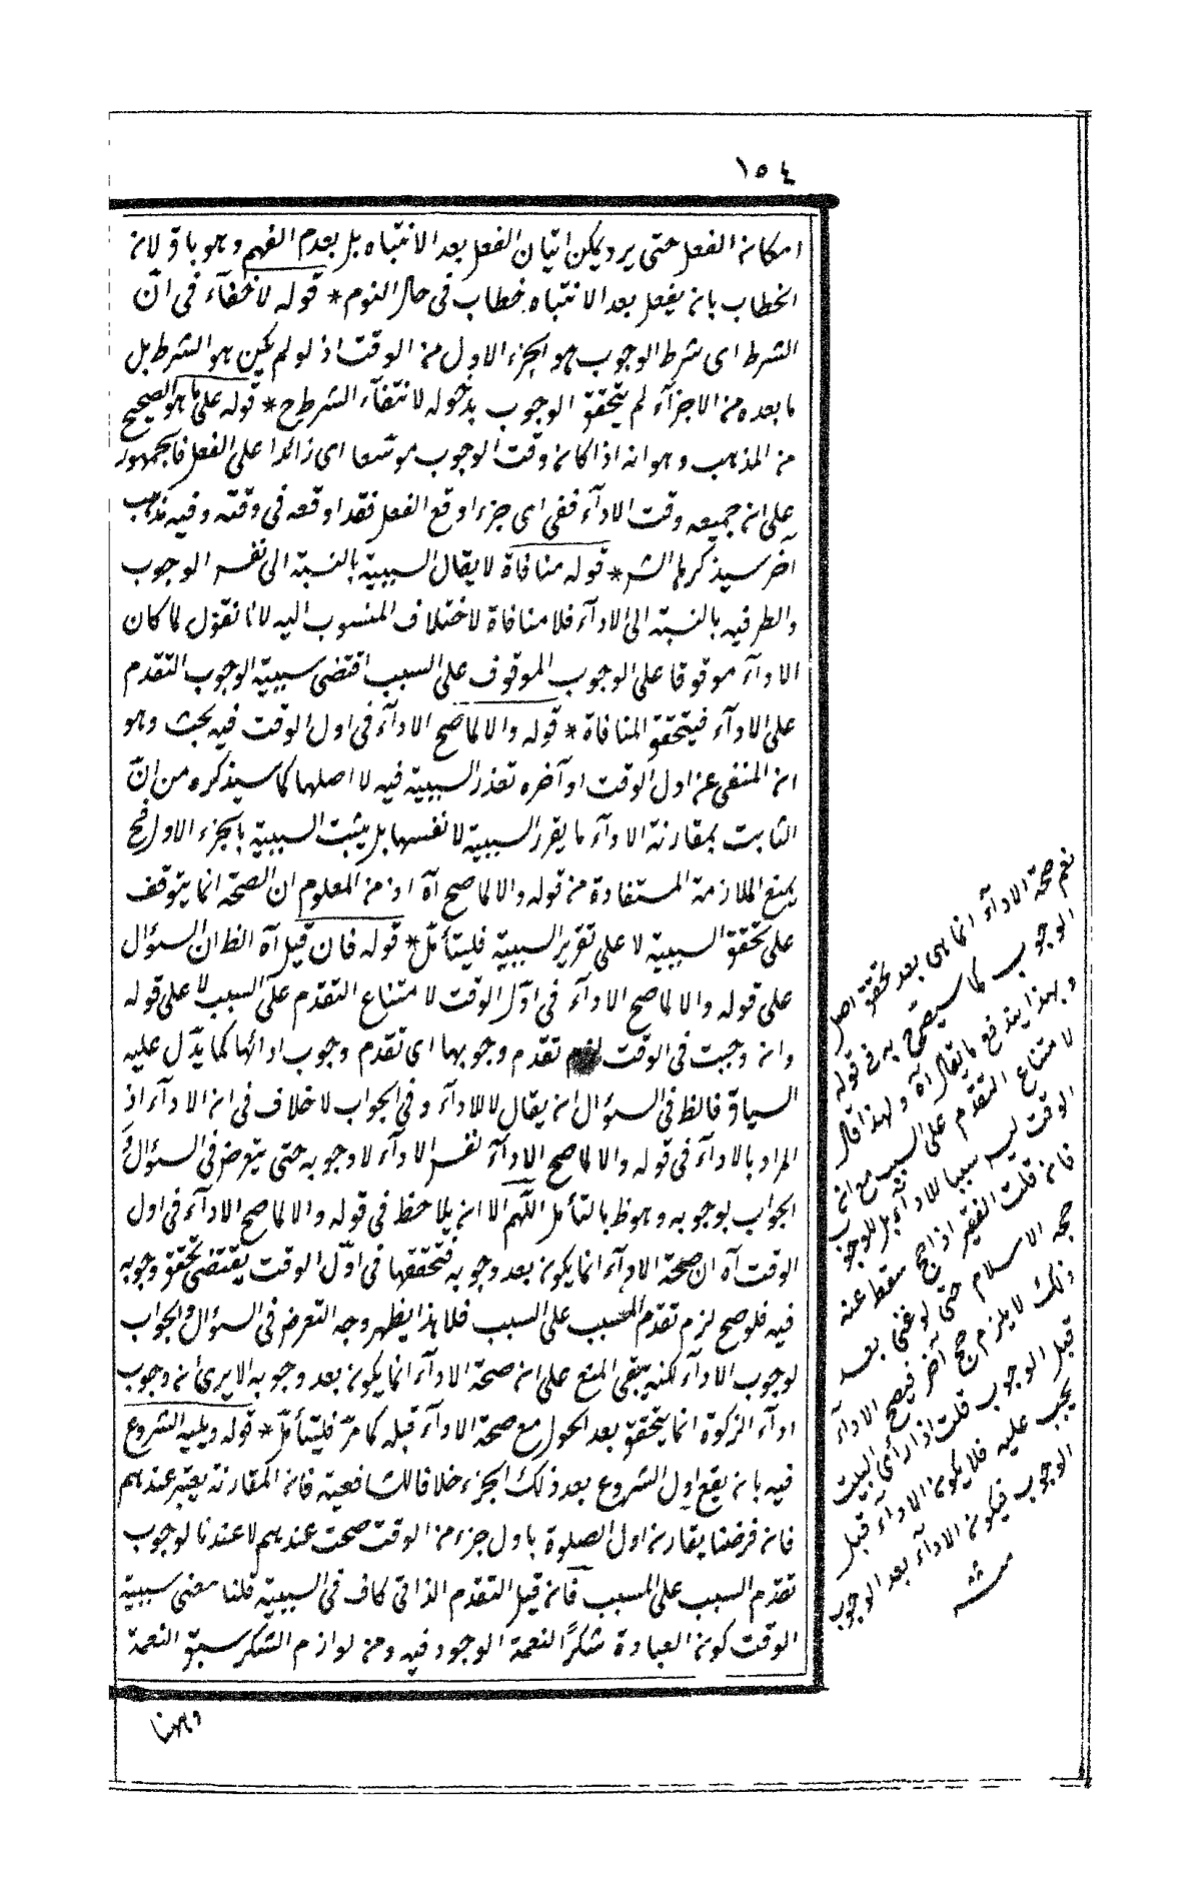 ١٥٤
امكانه الفعل حتى يرد يمكن اتيان الفعل بعد الانتباه بل بعدم الفهم وهو باق لانه
الخطاب بانه يفعل بعد الانتباه خطاب فى حال النوم * قوله لا خفآء فى انّ
الشرط اى شرط الوجوب هو الجزء الاول من الوقت اذ لو لم يكن هو الشرط بل
ما بعده من الاجزآء لم يتحقق الوجوب بدخوله لانتفآء الشرط ح * قوله على ما هو الصحيح
من المذهب وهو انه اذا كان وقت الوجوب موسّعا اى زائدا على الفعل فالجمهور
على ان جميعه وقت الادآء ففى اى جزء اوقع الفعل فقد اوقعه فى وقته وفيه مذهب
آخر سيذكره الش * قوله منافاة لا يقال السببية بالنسبة الى نفس الوجوب
والظرفيه بالنسبة الى الادآء فلا منافاة لاختلاف المنسوب اليه لانا نقول لما كان
الادآء موقوفا على الوجوب الموقوف على السبب اقتضى سببية الوجوب التقدم
على الادآء فيتحقق المنافاة * قوله والا لما صح الادآء فى اول الوقت فيه بحث وهو
ان المنفى عن اول الوقت او آخره تقرر السببية فيه لا اصلها كما سيذكره من انّ
الثابت بمقارنة الادآء ما يقرر السببية لا نفسها بل يثبت السببية بالجزء الاول فح
يمنع الملازمة المستفادة من قوله والا لما صح آه اذ من المعلوم ان الصحة انما يتوقف
على تحقق السببية لا على تقرير السببية فليتأمّل * قوله فان قيل آه الظ ان السؤال
على قوله والا لما صح الادآء فى اوّل الوقت لامتناع التقدم على السبب لا على قوله
وان وجبت فى الوقت تقدم وجوبها اى تقدم وجوب ادائها كما يدّل عليه
السياق فالظ فى السؤال ان يقال لا للادآء وفى الجواب لا خلاف فى ان الادآء اذ
المراد بالادآء فى قوله والا لما صح الادآء نفس الادآء لا وجوبه حتى يتعرض فى السؤال و
الجواب لوجوبه وهو ظ بالتأمل اللّهم الا ان يلاحظ فى قوله والا لما صح الادآء فى اول
الوقت آه ان صحة الادآء انما يكون بعد وجوبه فتحققها فى اوّل الوقت يقتضى تحقق وجوبه
فيه فلو صح لزم تقدم المسبب على السبب فلا هذا يظهر وجه التعرض فى السؤال والجواب
لوجوب الادآء لكنه يبقى المنع على ان صحة الادآء انما يكون بعد وجوبه الا يرى ان وجوب
ادآء الزكوة انما يتحقق بعد الحول مع صحة الادآء قبله كما مرّ فليتأمّل * قوله ويليه الشروع
فيه بان يقع اول الشروع بعد ذلك الجزء خلافا للشافعية فان المقارنة يعتبر عندهم
فان فرضنا يقارن اول الصلوة باول جزء من الوقت صحت عندهم لا عندنا لوجوب
تقدم السبب على المسبب فان قيل التقدم الذاتى كاف فى السببية قلنا معنى سببية
الوقت كون العبادة شكرًا لنعمة الوجود فيه ومن لوازم الشكر سبق النعمة
وههنا
نعم صحة الادآء انما هى بعد تحقق اصل
الوجوب كما سيصرّح به فى قوله
وبهذا يندفع ما يقال آه ولهذا قال
لامتناع التقدم على السبب مع ان
الوقت ليس سببا للادآء بل للوجوب
فان قلت الفقير اذا حج سقط عنه
حجة الاسلام حتى لو غنى بعد
ذلك لا يلزم حج آخر فيصح الادآء
قبل الوجوب قلت اذا رأى البيت
يجب عليه فلا يكون الادآء قبل
الوجوب فيكون الادآء بعد الوجوب
منه